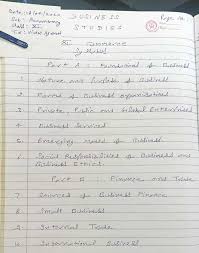 BUSINESS
Page No.
STUDIES
XI Commerce
Syllabus
Part A : Foundations of Business
1. Nature and Purpose of Business
2. Forms of Business Organisations
3. Private, Public and Global Enterprises
4. Business Services
5. Emerging Modes of Business
6. Social Responsibilities of Business and
Business Ethics.
Part B : Finance and Trade
7. Sources of Business Finance
8. Small Business
9. Internal Trade
10. International Business